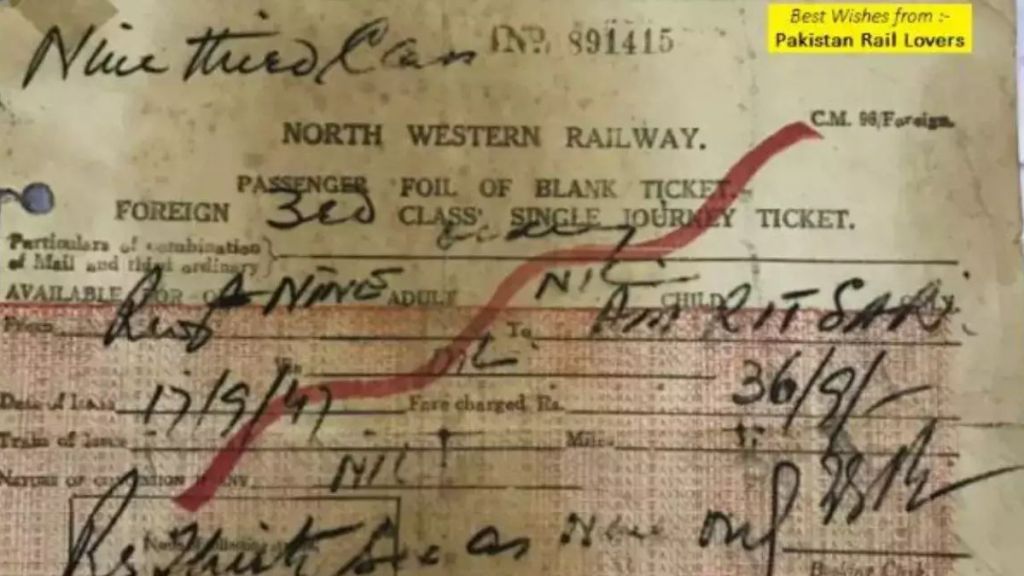 Best Wishes from :-
Pakistan Rail Lovers
Nine third Class No. 891415
C.M. 96/Foreign.
NORTH WESTERN RAILWAY.
PASSENGER FOIL OF BLANK TICKET.
FOREIGN 3rd CLASS SINGLE JOURNEY TICKET.
Particulars of combination
of Mail and third ordinary
AVAILABLE FOR NINE ADULT NIL CHILD only.
From To AMRITSAR.
Via NIL
Date of issue 17/9/47 Fare charged Rs. 36/9/-
Train of issue Miles
NATURE OF CONCESSION IF ANY NIL
Rs Thirty Six as Nine only
Booking Clerk